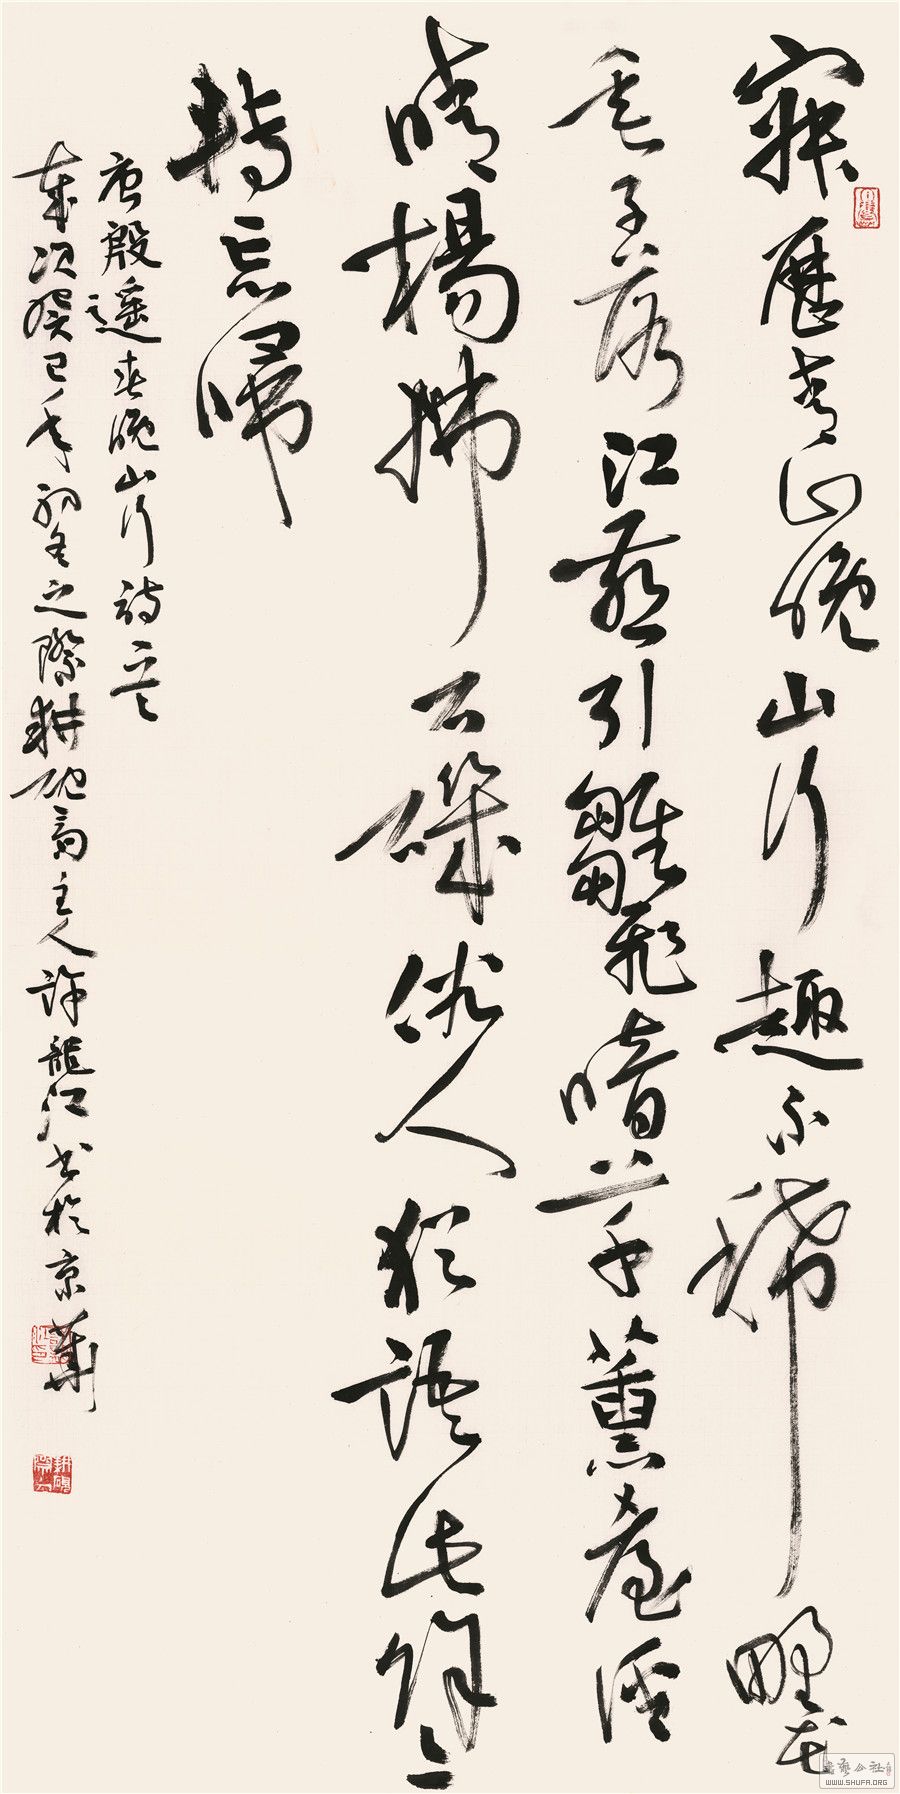 寂歷青山晚山行趣不稀野花
成子落江燕引雛飛暗草薰苔徑
晴楊拂石磯俗人猶語此餘亦
轉忘歸
唐殷遙春晚山行詩一首
歲次癸巳年初冬之際耕硯齋主人許龍江書於京華
書藝公社
WWW.SHUFA.ORG